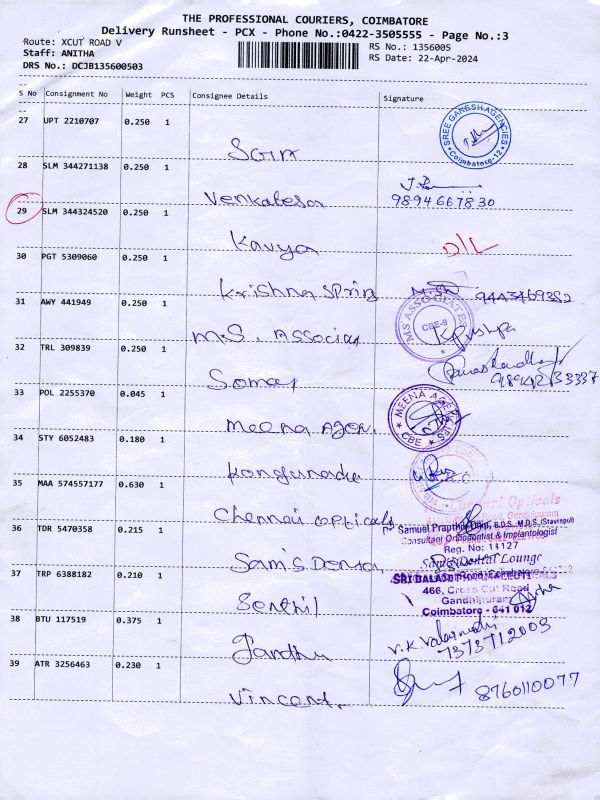 THE PROFESSIONAL COURIERS, COIMBATORE
Delivery Runsheet - PCX - Phone No.:0422-3505555 - Page No.:3
Route: XCUT ROAD V
RS No.: 1356005
Staff: ANITHA
RS Date: 22-Apr-2024
DRS No.: DCJB135600503
S No Consignment No Weight PCS Consignee Details Signature
27 UPT 2210707 0.250 1
SREE GANESH AGENCIES
Coimbatore-12
28 SLM 344271138 0.250 1
Venkatesa
9894667830
29 SLM 344324520 0.250 1
Kavya
D/L
30 PGT 5309060 0.250 1
Krishna spring
31 AWY 441949 0.250 1
MS ASSOCIATES
CBE-9
M.S. Associas
Pushpa
32 TRL 309839 0.250 1
Somas
33 POL 2255370 0.045 1
MEENA AGENCIES
CBE
Meena Agen.
34 STY 6052483 0.180 1
Kongunadu
35 MAA 574557177 0.630 1
Chennai Opticals
Chennai opticals
Gandhipuram
Samuel Prapthir Dilip, B.D.S., M.D.S.,(Stavropul)
Consultant Orthodontist & Implantologist
Reg. No: 11127
36 TDR 5470358 0.215 1
Sam's Dental Lounge
Sam's Dental
37 TRP 6388182 0.210 1
SRI BALAJI
466, Cross Cut Road
Gandhipuram
Coimbatore - 641 012
Senthil
38 BTU 117519 0.375 1
V.K. Valarmathi
7373712009
39 ATR 3256463 0.230 1
Vincent.
8760110077